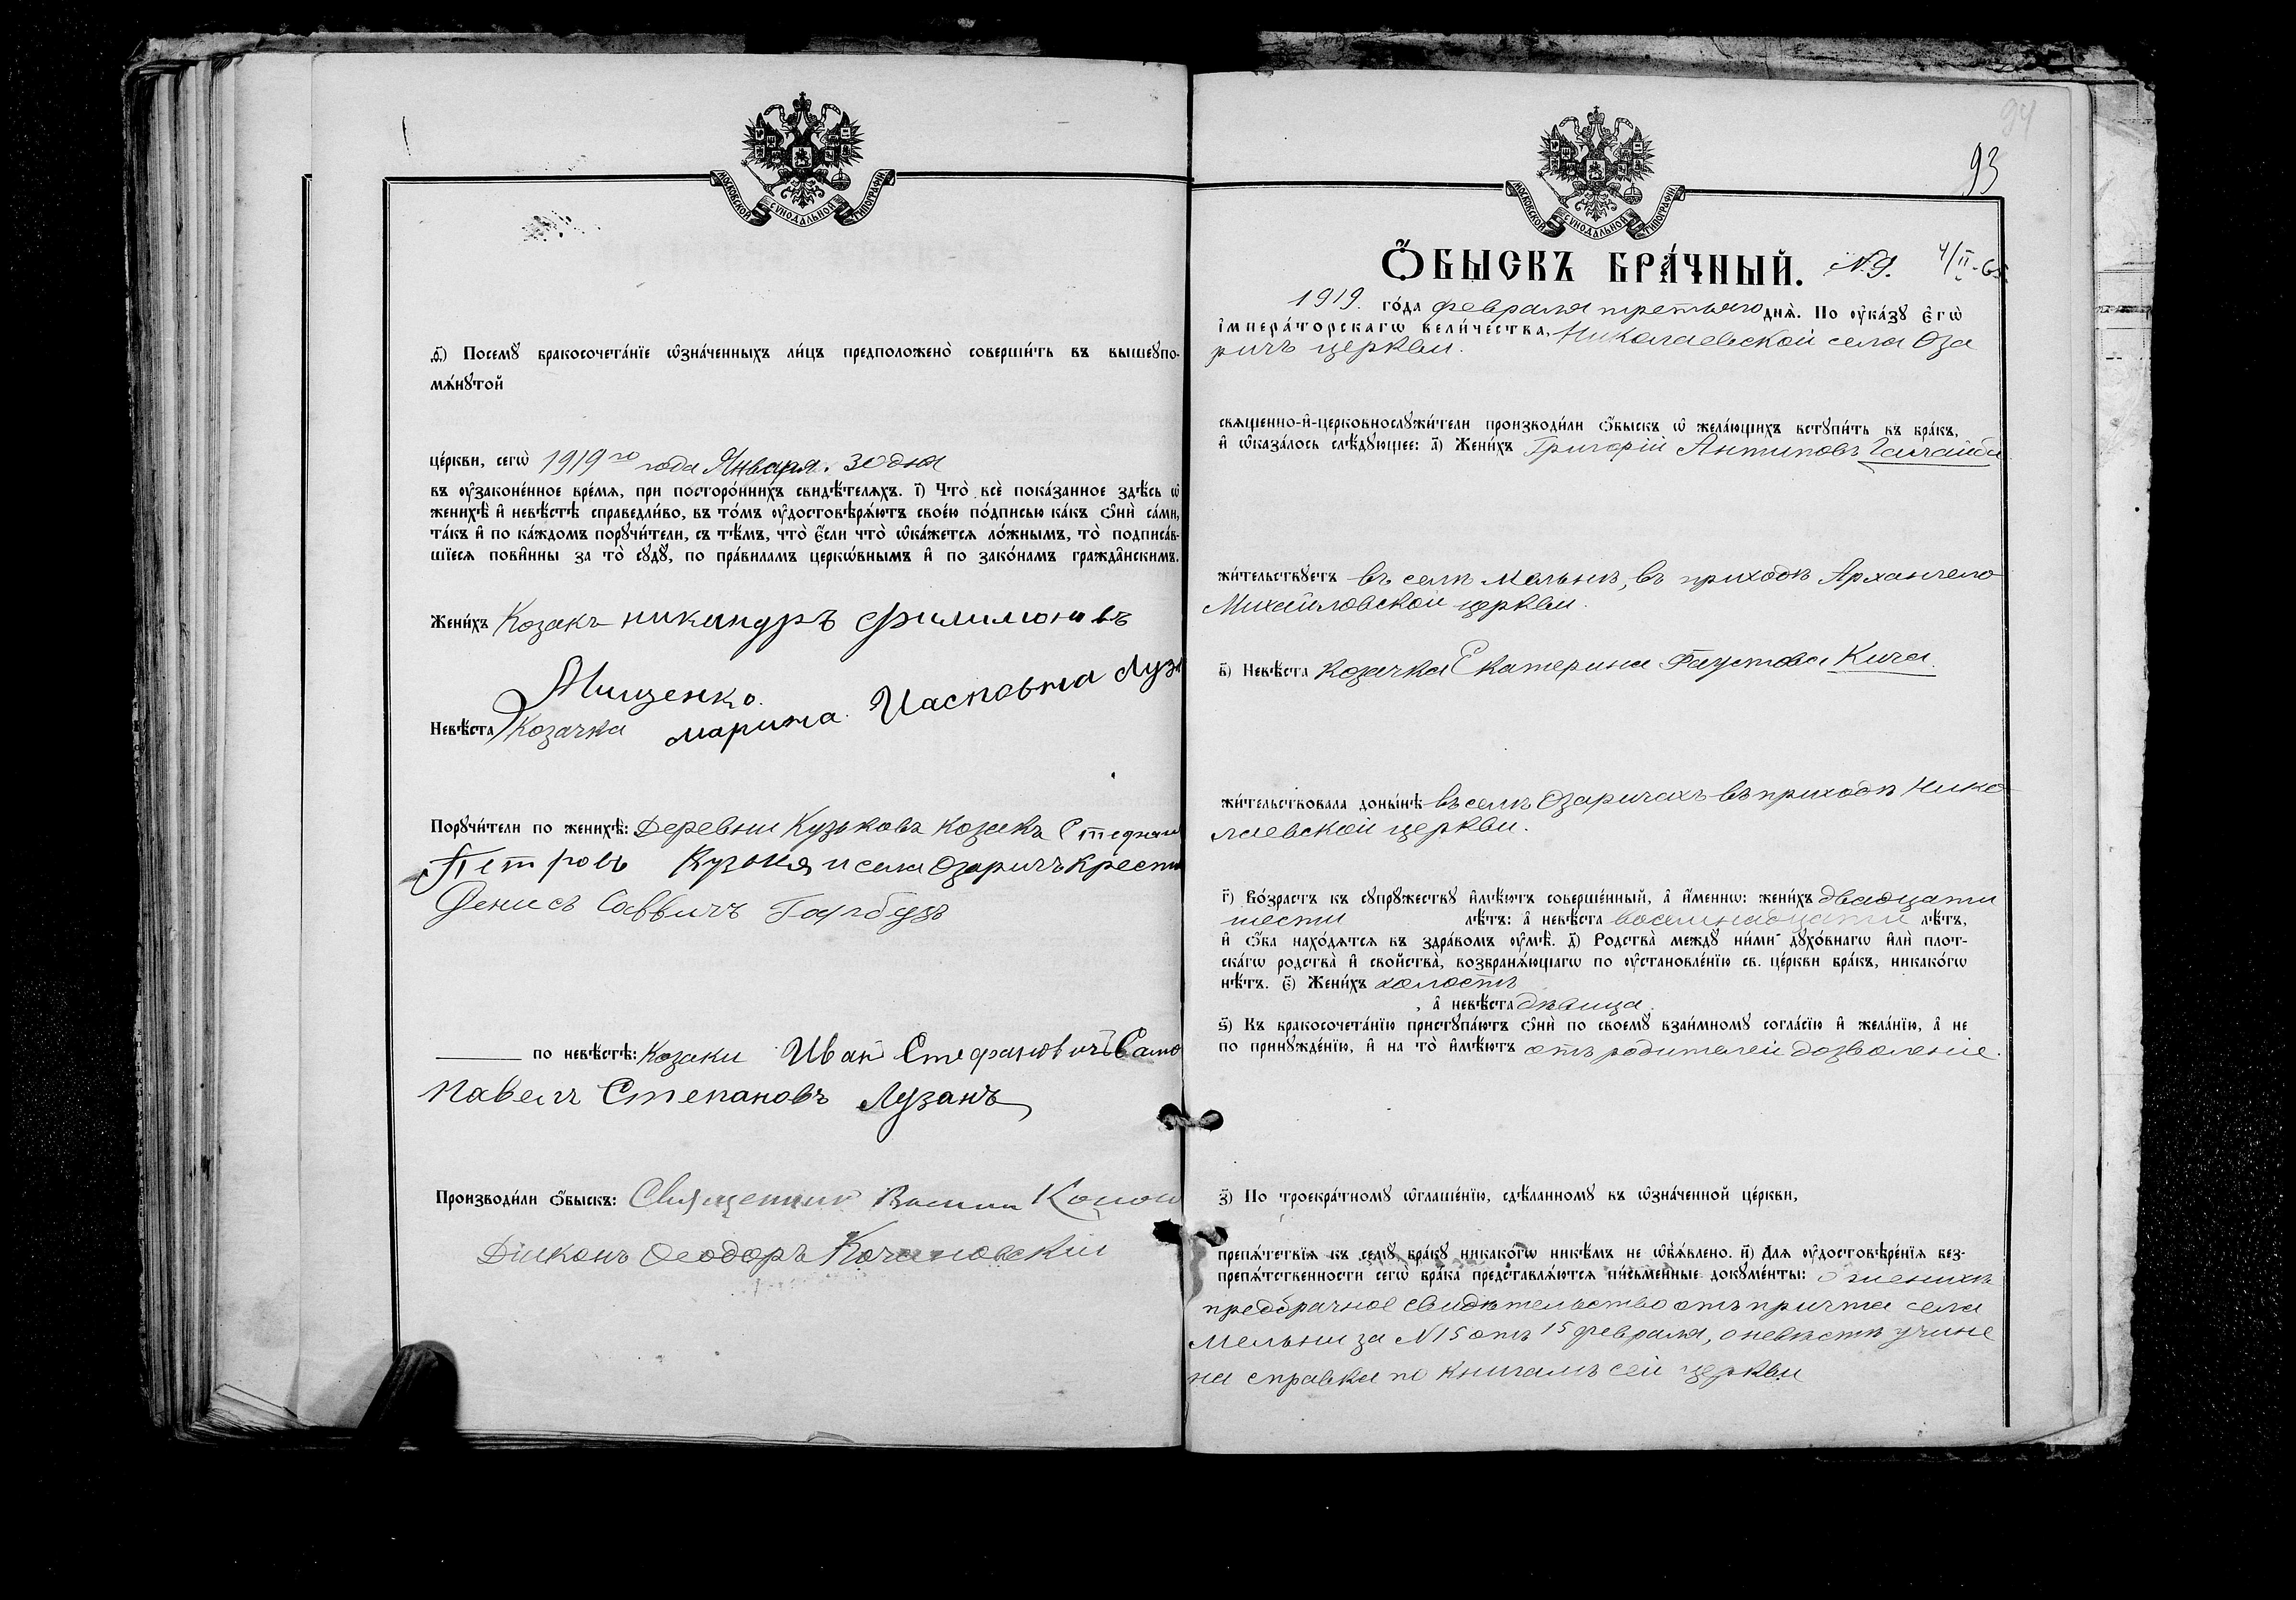 МОСКОВСКОЙ СѴНОДАЛЬНОЙ ТИПОГРАФІИ
Посемꙋ бракосочета́нїе ѡ҆зна́ченныхъ ли́цъ предположено̀ соверши́ть въ вышеꙋпо-
мѧ́нꙋтой
це́ркви, сегѡ̀ 1919го года Января. 30 дня
въ ᲂу҆законе́нное вре́мѧ, при посторо́ннихъ свидѣ́телѧхъ. і҃) Что̀ всѐ пока́занное здѣ́сь ѡ҆
женихѣ̀ и҆ невѣ́стѣ справедли́во, въ то́мъ ᲂу҆достовѣрѧ́ютъ свое́ю по́дписью ка́къ ѻ҆нѝ са́ми,
та́къ и҆ по ка́ждомъ порꙋчи́тели, съ тѣ́мъ, что̀ є҆́сли что̀ ѡ҆ка́жетсѧ ло́жнымъ, то̀ подписа́в-
шїесѧ пови́нны за то̀ сꙋдꙋ̀, по пра́виламъ церкѡ́внымъ и҆ по зако́намъ гражда̂нскимъ.
Жени́хъ Козакъ никандръ филимоновъ
Мищенко.
Невѣ́ста Козачка марина
Порꙋчи́тели по женихѣ̀: Деревни Кузьковъ козакъ Стефан
Петровъ и села Озаричъ крест
Денисъ Саввичъ Гарбузъ
по невѣ́стѣ: Козаки Иван Стефановичъ Само
Павелъ Степановъ Лузанъ
Производи́ли ѻ҆́быскъ: Священник
Діаконъ Ѳеодоръ Кочановскій
94
93
МОСКОВСКОЙ СѴНОДАЛЬНОЙ ТИПОГРАФІИ
Ѻ҆́БЫСКЪ БРА́ЧНЫЙ. N. 9. 4/II-65
1919. го́да февраля третьяго днѧ̀. По ᲂу҆ка́зꙋ Є҆гѡ̀
І҆мпера́торскагѡ вели́чества, Николаевской села Оза
ричъ церкви.
свѧщенно-и҆-церковнослꙋжи́тели производи́ли ѻ҆́быскъ ѡ҆ жела́ющихъ встꙋпи́ть въ бра́къ,
и҆ ѡ҆каза́лось слѣ́дꙋющее: а҃) Жени́хъ Григорій Антиповъ
жи́тельствꙋетъ въ селѣ Мельнѣ, въ приходѣ Архангело
Михайловской церкви.
в҃) Невѣ́ста козачка Екатерина Фаустова Кича.
жи́тельствовала доны́нѣ въ селѣ Озаричахъ въ приходѣ Нико
лаевской церкви.
г҃) Во́зрастъ къ сꙋпрꙋ́жествꙋ и҆мѣ́ютъ соверше́нный, а҆ и҆́меннѡ: жени́хъ двадцати
шести лѣ́тъ: а҆ невѣ́ста восемнадцати лѣ́тъ,
и҆ ѻ҆́ба нахо́дѧтсѧ въ здра́вомъ ᲂу҆мѣ̀. д҃) Родства̀ междꙋ ни́ми дꙋхо́внагѡ и҆лѝ плот-
ска́гѡ родства̀ и҆ сво́йства̀, возбранѧ́ющагѡ по ᲂу҆становле́нїю св. це́ркви бра́къ, никако́гѡ
нѣ́тъ. є҃) Жени́хъ холостъ
, а҆ невѣ́ста дѣвица.
ѕ҃) Къ бракосочета́нїю пристꙋпа́ютъ ѻ҆нѝ по своемꙋ̀ взаи́мномꙋ согла́сїю и҆ жела́нїю, а҆ не
по принꙋжде́нїю, и҆ на то̀ и҆мѣ́ютъ отъ родителей дозволеніе.
з҃) По троекра́тномꙋ ѡ҆глаше́нїю, сдѣ́ланномꙋ въ ѡ҆зна́ченной це́ркви,
препѧ́тствїѧ къ семꙋ̀ бра́кꙋ никако́гѡ никѣ́мъ не ѡ҆б̾ѧ́влено. и҃) Длѧ ᲂу҆достовѣре́нїѧ без-
препѧ́тственности сегѡ̀ бра́ка представлѧ́ютсѧ пи́сьменные докꙋме́нты: о женихѣ
предбрачное свидѣтельство отъ причта села
Мельни за N 15 отъ 15 февраля, о невѣстѣ учине
на справка по книгамъ сей церкви